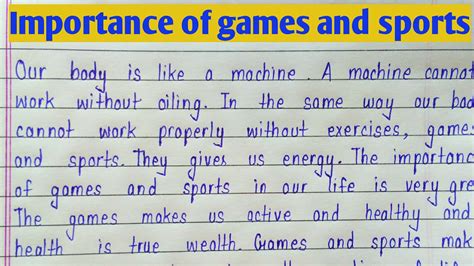 Importance of games and sports
Our body is like a machine. A machine canno
work without oiling. In the same way our bod
cannot work properly without exercises, game
and sports. They gives us energy. The importan
of games and sports in our life is very gre
The games makes us active and healthy and
health is true wealth. Games and sports mak